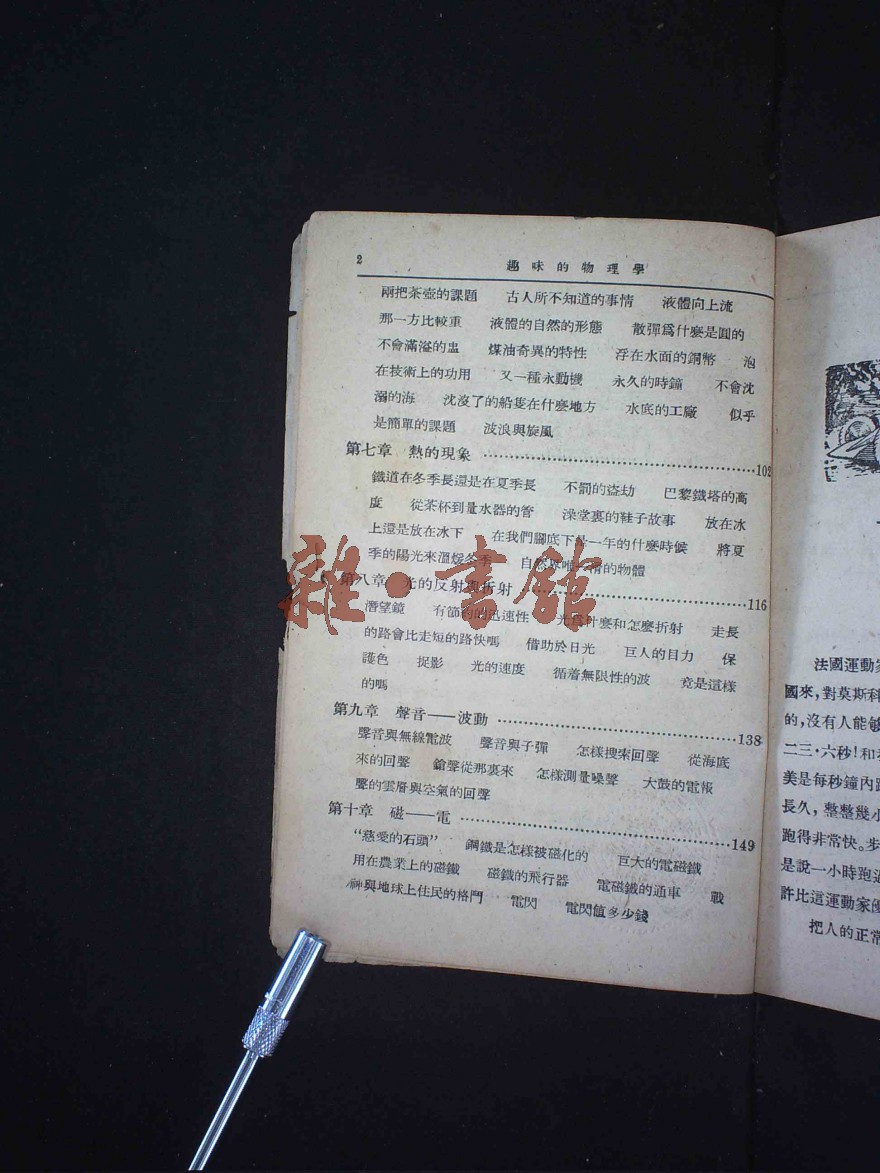 2
趣味的物理學
兩把茶壺的課題　古人所不知道的事情　液體向上流
那一方比較重　液體的自然的形態　散彈爲什麽是圓的
不會滿溢的盅　煤油奇異的特性　浮在水面的銅幣　泡
在技術上的功用　又一種永動機　永久的時鐘　不會沈
溺的海　沈沒了的船隻在什麽地方　水底的工廠　似乎
是簡單的課題　波浪與旋風
第七章　熱的現象 ……102
鐵道在冬季長還是在夏季長　不罰的盜劫　巴黎鐵塔的高
度　從茶杯到量水器的管　澡堂裏的鞋子故事　放在冰
上還是放在冰下　在我們腳底下是一年的什麽時候　將夏
季的陽光來溫煖冬季　自然界唯一的物體
第八章　光的反射與折射 ……116
潛望鏡　有節約的迅速性　光爲什麽和怎麽折射　走長
的路會比走短的路快嗎　借助於日光　巨人的目力　保
護色　捉影　光的速度　循着無限性的波　竟是這樣
的嗎
第九章　聲音——波動 ……138
聲音與無線電波　聲音與子彈　怎樣搜索回聲　從海底
來的回聲　鎗聲從那裏來　怎樣測量噪聲　大鼓的電報
聲的雲層與空氣的回聲
第十章　磁——電 ……149
“慈愛的石頭”　鋼鐵是怎樣被磁化的　巨大的電磁鐵
用在農業上的磁鐵　磁鐵的飛行器　電磁鐵的通車　戰
神與地球上住民的格鬥　電閃　電閃值多少錢
雜·書館
法國運動家
國來，對莫斯科
的，沒有人能够
二三·六秒！和
美是每秒鐘內跑
長久，整整幾小
跑得非常快。步
是說一小時跑過
許比這運動家優
把人的正常